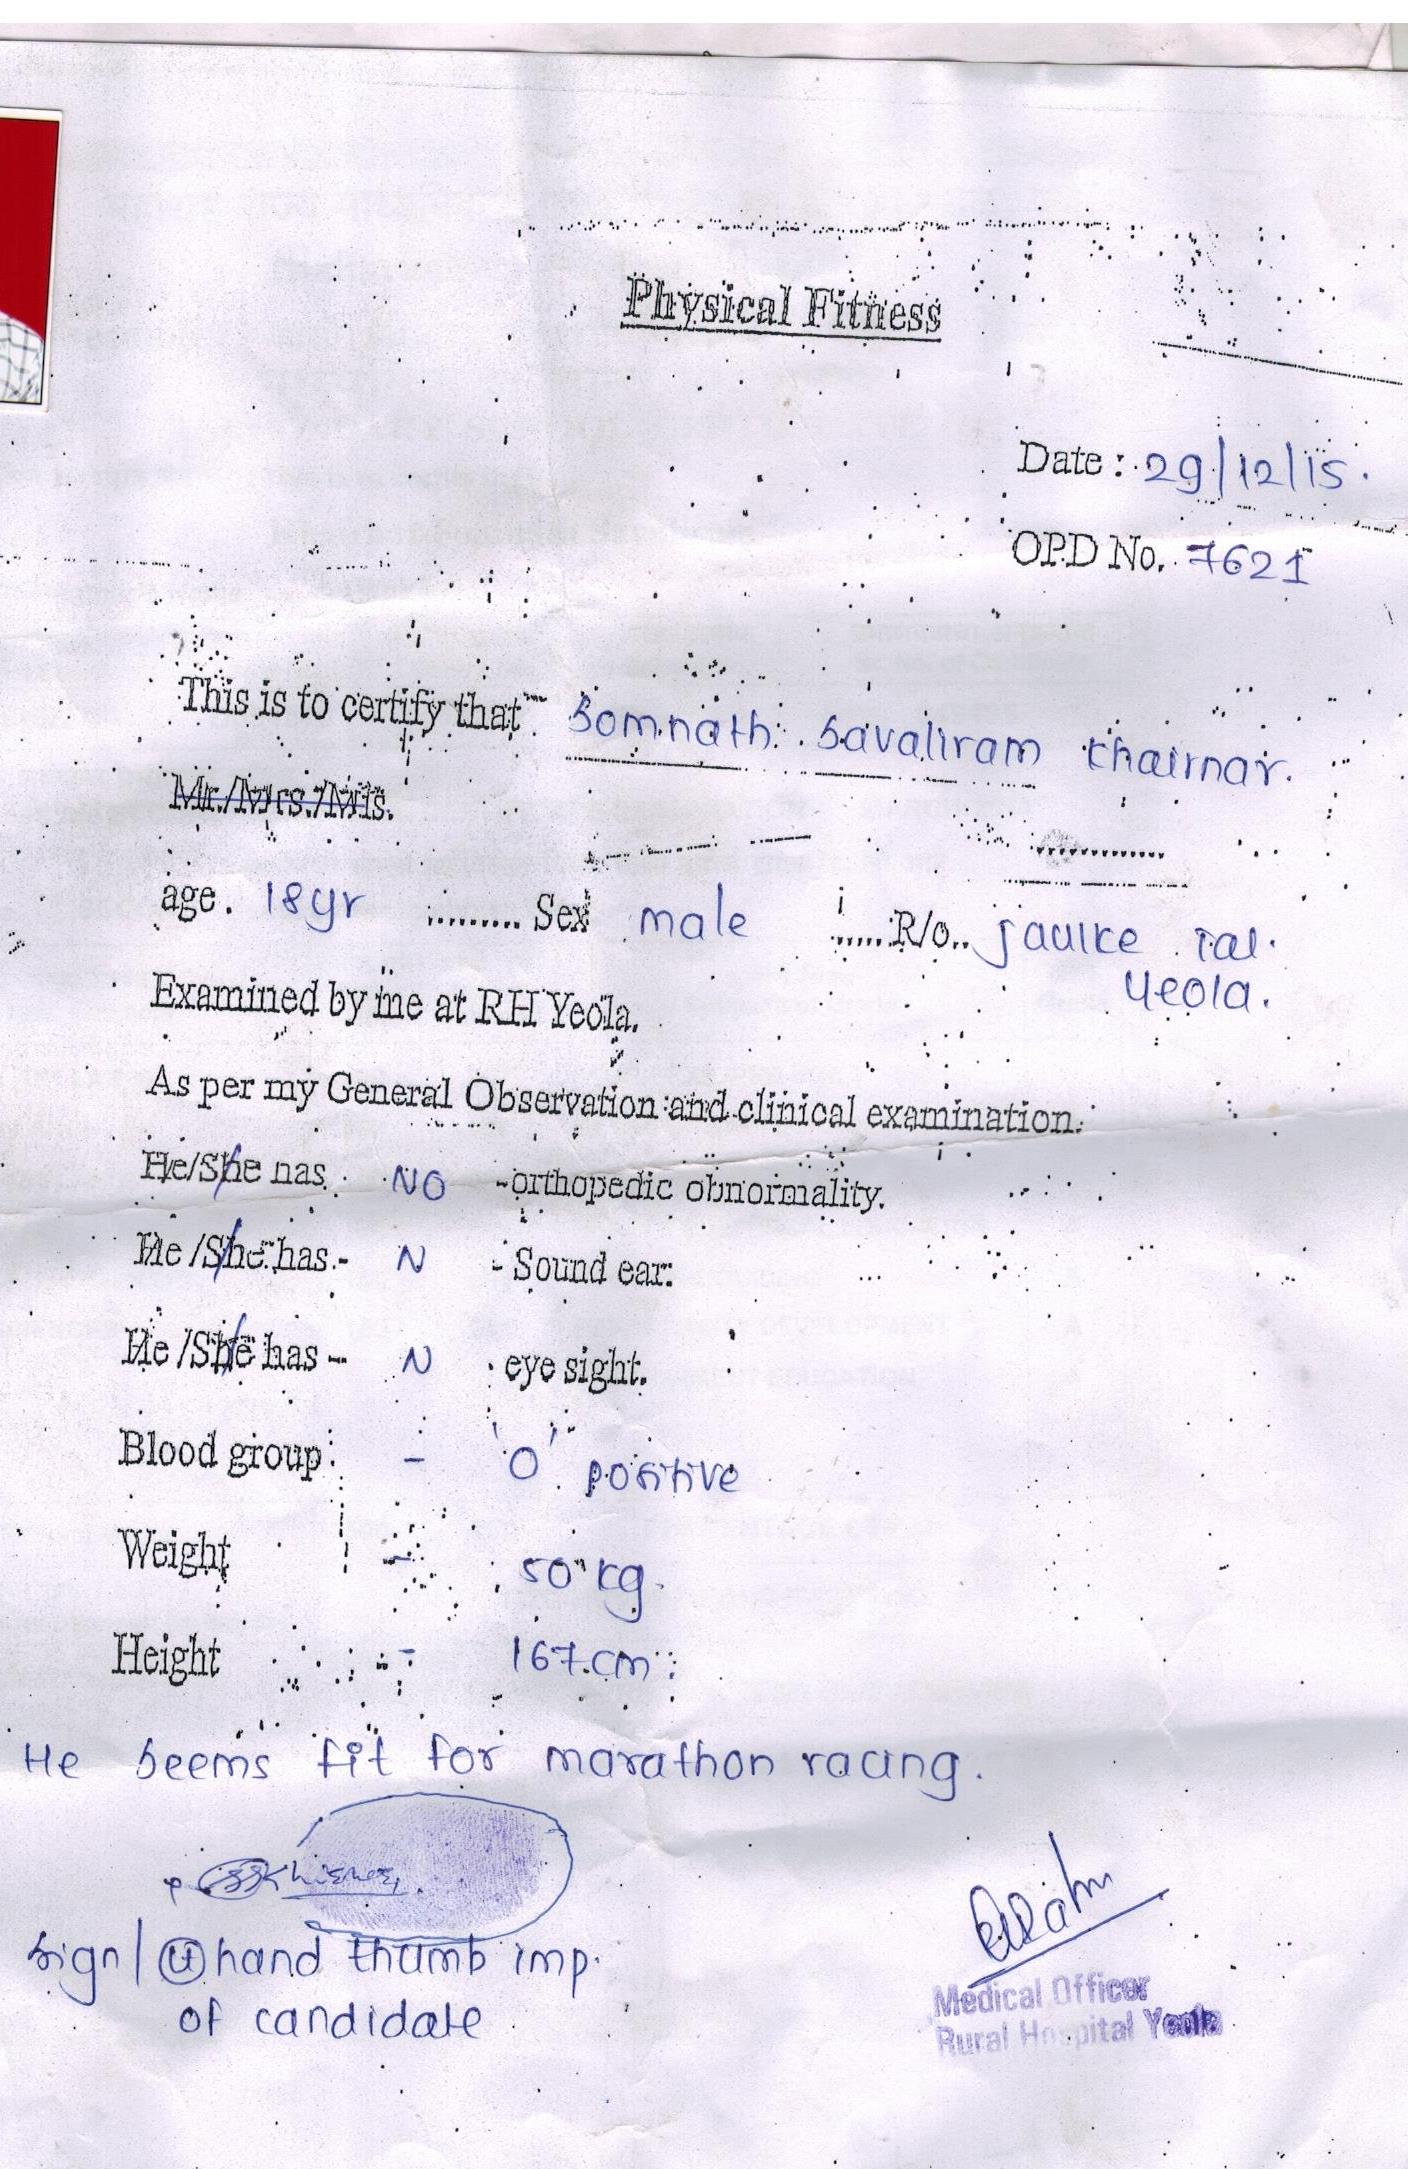 Physical Fitness
Date : 29/12/15.
OPD No. 7621
This is to certify that Somnath Savaliram Khairnar.
Mr./Mrs./Mis.
age. 18yr ......... Sex male ......R/o.. Jaulke Tal.
Yeola.
Examined by me at RH Yeola.
As per my General Observation and clinical examination.
He/She has NO - orthopedic obnormality.
He /She has - N - Sound ear.
He /She has - N eye sight.
Blood group : - 'O' positive
Weight - 50 kg.
Height - 167.cm
He seems fit for marathon racing.
sign/ Lt hand thumb imp.
of candidate
Medical Officer
Rural Hospital Yeola